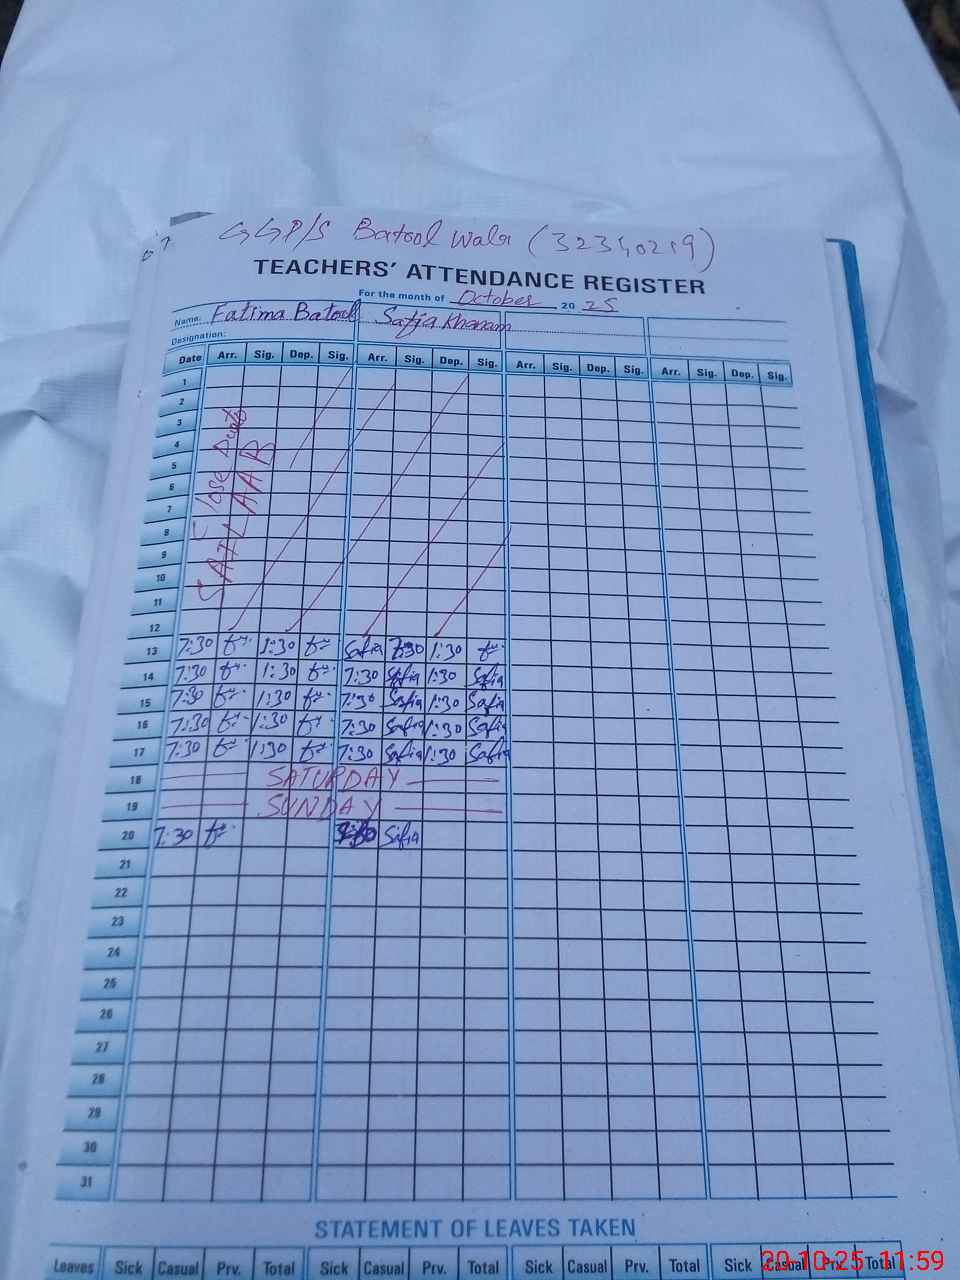 GGP/S Batool Wala (32340219)
TEACHERS' ATTENDANCE REGISTER
For the month of October 20 25
Name: Fatima Batool Safia Khanam
Designation:
Date Arr. Sig. Dep. Sig. Arr. Sig. Dep. Sig. Arr. Sig. Dep. Sig. Arr. Sig. Dep. Sig.
1
2
3
4
5
6
7
8
9
10
11
12
Close
SAILAAB
13 7:30 1:30 Safia 7:30 1:30
14 7:30 1:30 7:30 Safia 1:30 Safia
15 7:30 1:30 7:30 Safia 1:30 Safia
16 7:30 1:30 7:30 Safia 1:30 Safia
17 7:30 1:30 7:30 Safia 1:30 Safia
18 SATURDAY
19 SUNDAY
20 7:30 Safia
21
22
23
24
25
26
27
28
29
30
31
STATEMENT OF LEAVES TAKEN
Leaves Sick Casual Prv. Total Sick Casual Prv. Total Sick Casual Prv. Total Sick Casual Prv. Total
20.10.25 11:59